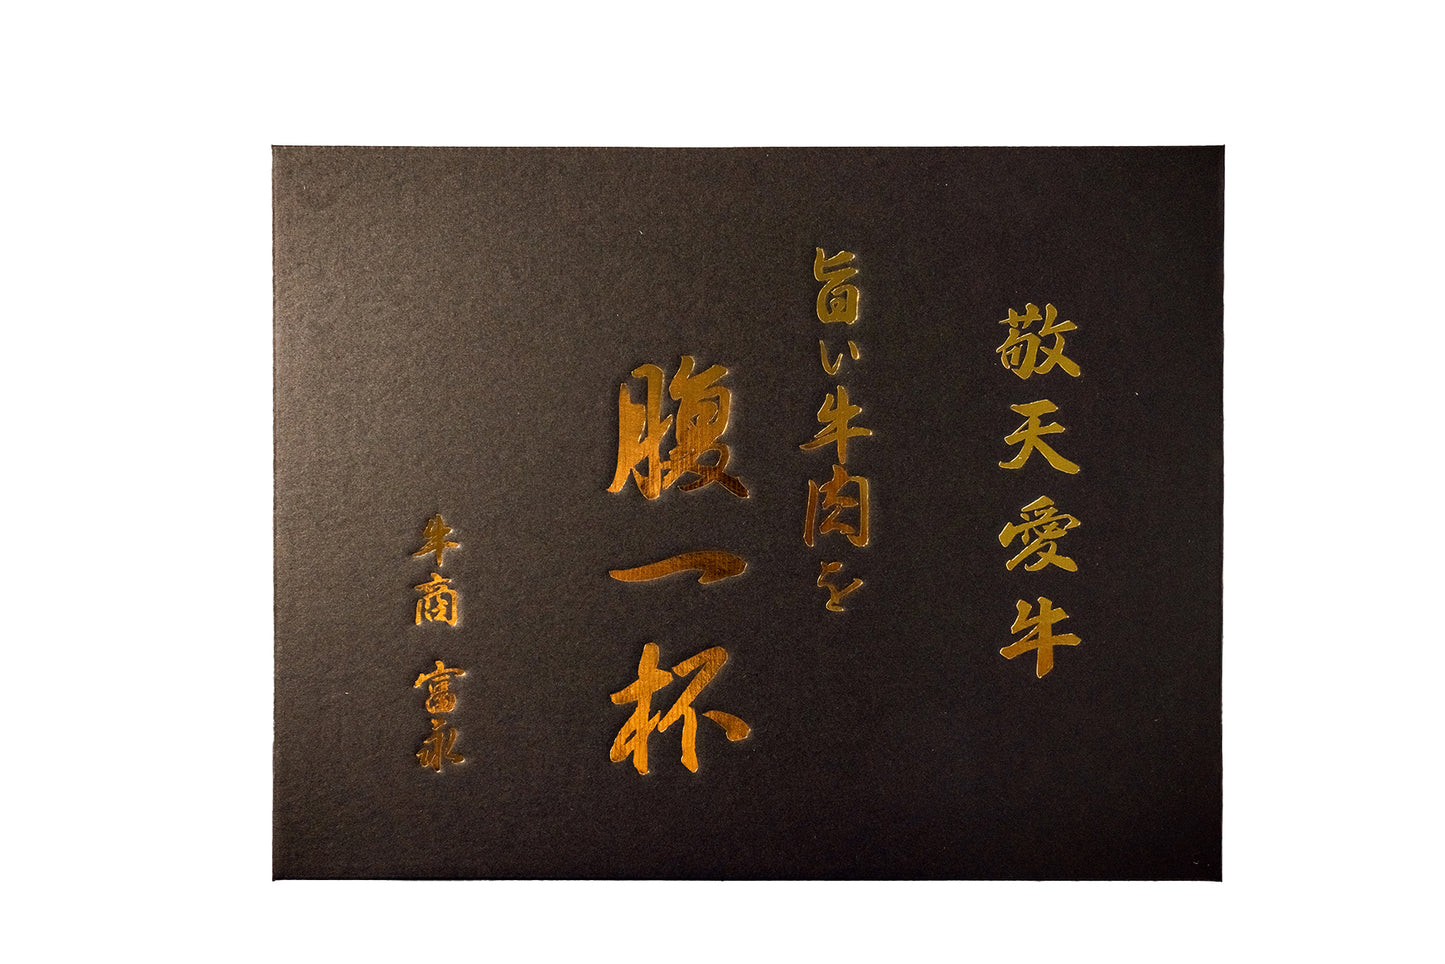 敬天愛牛
旨い牛肉を
腹一杯
牛商 富永